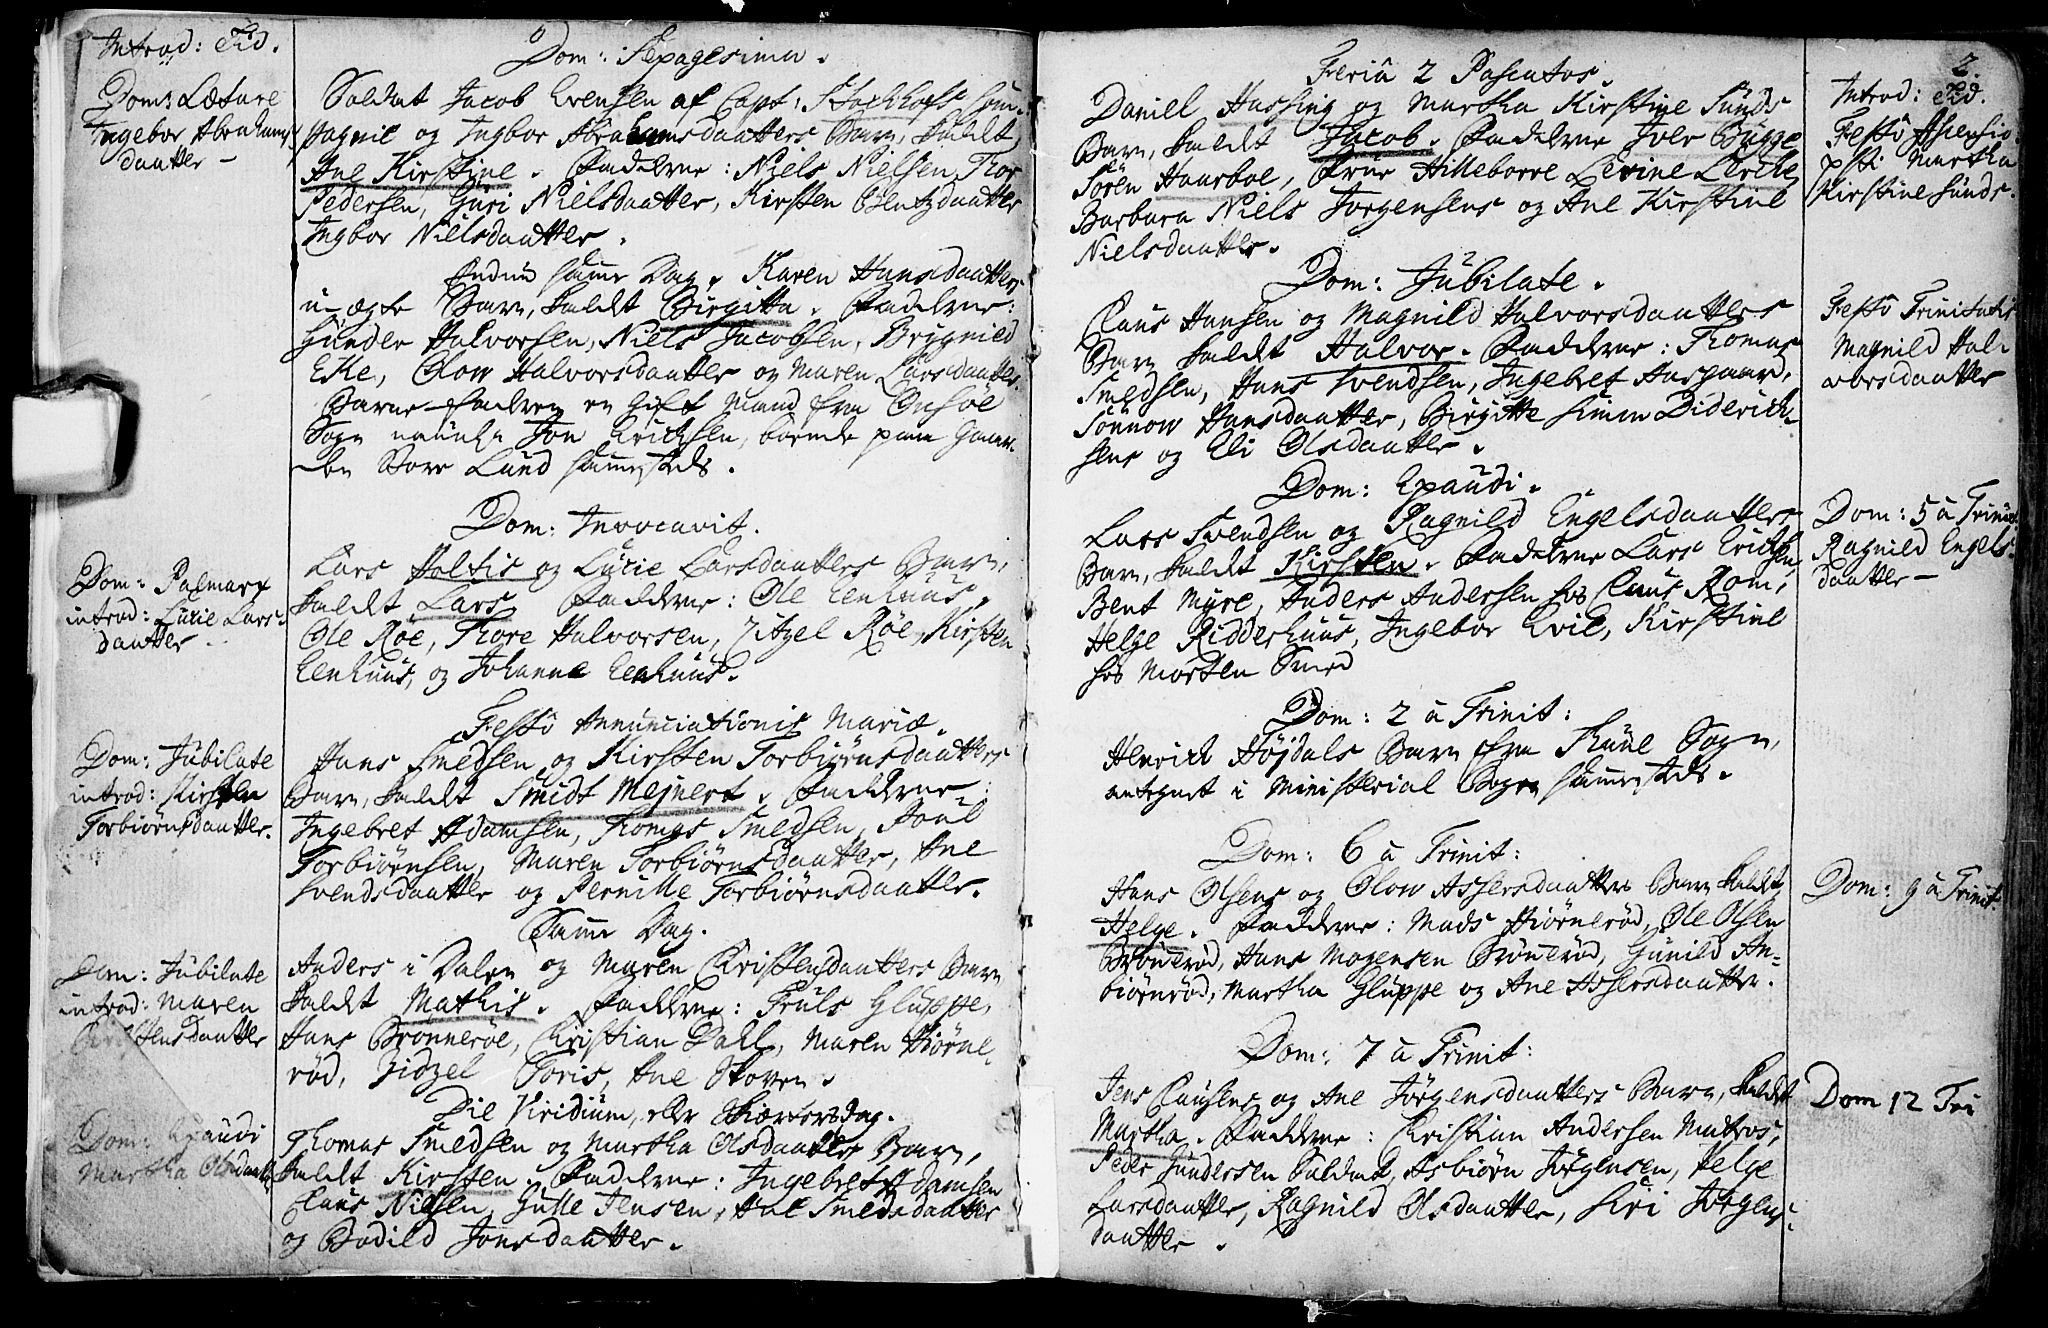 Introd: Tid.
Dom: Læture
Ingebor Abrahams
daatter –
Dom: Palmarx
introd: Lucie Lars-
daatter
Dom: Jubilate
introd: Kirsten
Torbiørnsdaatter.
Dom: Jubilate
introd: Maren
Christensdaatter
Dom: Exaudi
Martha Olsdaatt
Dom: Sexagesima.
Soldat Jacob Evensen af Capt: Stockhofs Com-
pagnie og Ingbor Abrahamsdaatters Barn, kaldt
Ane Kirstine. Fadderne: Niels Nielsen, Thor
Pedersen, Guri Nielsdaatter, Kirsten Bentzdaatter
Ingbor Nielsdaatter.
Endnu samme Dag. Karen Hansdaatters
u-ægte Barn, kaldt Birgitta. Fadderne:
Gunder Halvorsen, Niels Jacobsen, Brygnild
Eke, Olow Halvorsdaatter og Maren Larsdaatter.
Barne-faderen en Gift Mand fra Onsøe
Sogn naunl. Jon Erichsen, boende paa Gaar-
den Store Lund sammesteds.
Dom: Invocavit.
Lars Holtis og Lucie Larsdaatters Barn,
kaldt Lars Fadderne: Ole Eenhuus,
Ole Røe, Thore Halvorsen, Zitzel Røe, Kirsten
Eenhuus, og Johanne Eenhuus.
Festo Annunciationis Mariæ.
Hans Smedsen og Kirsten Torbiørnsdaatters
Barn, kaldt Smidt Mejnert. Fadderne:
Ingebret Adamsen, Thomas Smedsen, Poul
Torbiørnsen, Maren Torbiørnsdaatter, Ane
Svendsdaatter og Pernille Torbiørnsdaatter.
Samme Dag.
Anders i Dalen og Maren Christensdaatters Barn
kaldt Mathis. Fadderne: Truls Gluppe,
Hans Brønnerøe, Christian Dahl, Maren Hiørne-
rød, Zidzel Toris, Ane Skoven.
Die Viridium, eller Skiærtorsdag.
Thomas Smedsen og Martha Olsdaatters Barn,
kaldt Kirsten. Fadderne: Ingebret Adamsen
Claus Nielsen, Gulle Jensen, Ane Smedsdaatter
og Bodild Jonsdaatter.
Feria 2 Paschatos.
Daniel Hassing og Martha Kirstine Sunds
Barn, kaldt Jacob. Fadderne Iver Bugge
Søren Haarboe, Frue Hilleborre Levine Lerche
Barbara Niels Jørgensens og Ane Kirstine
Nielsdaatter.
Dom: Jubilate.
Claus Hansen og Magnild Halvorsdaatters
Barn kaldt Halvor. Fadderne: Thomas
Smedsen, Hans Svendsen, Ingebret Aasgaard,
Sønnow Hansdaatter, Birgitte Simen Diderich-
sens og Eli Olsdaatter.
Dom: Exaudi.
Lars Svendsen og Ragnild Engelsdaatters
Barn, kaldt Kirsten. Fadderne Lars Erichsen,
Bent Myre, Anders Andersen hos Claus Rom,
Helge Ridderhuus, Ingebor Evil, Kirstine
hos Morten Smed
Dom: 2 a Trinit:
Henrich Højdals Barn fra Thune Sogn,
antegnet i Ministerial Bogen sammesteds.
Dom: 6 a Trinit:
Hans Olsens og Olow Assersdaatters Barn kaldt
Helge. Fadderne: Mads Hiørnerød, Ole Olsen
Brønnerød, Hans Mogensen Brønnerød, Gunild An-
biørnrød, Martha Gluppe og Ane Assersdaatter.
Dom: 7 a Trinit:
Jens Clausens og Ane Jørgensdaatters Barn, kaldt
Martha. Fadderne: Christian Andersen Matros,
Peder Gundersen Soldat, Asbiørn Jørgensen, Helge
Larsdaatter, Ragnild Olsdaatter, Siri Jørgens-
daatter.
2.
Introd: Tid.
Festo Ascensio:
psti Martha
Kirstine Sunds.
Festo Trinitatis
Magnild Hal-
vorsdaatter
Dom: 5 a Trinit.
Ragnild Engels-
daatter –
Dom: 9 a Trinit.
Dom 12 Tri